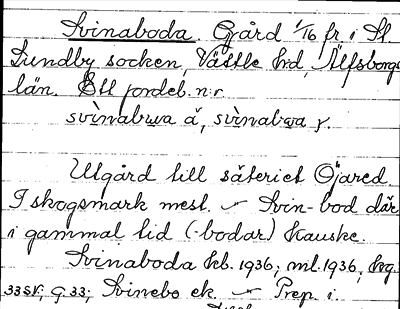 Svinaboda. Gård 1/16 fr i St.
Lundby socken, Vättle hd, Älfsborgs
län. Ett jordeb. n:r
svìnabωa å, svìnabωa γ.
Utgård till säteriet Öjared.
I skogsmark mest. – Svin-bod där
i gammal tid (-bodar) kanske.
Svinaboda kb. 1936; ml. 1936, hfg
33 SV; G. 33; Svinebo ek. – Prep. i.